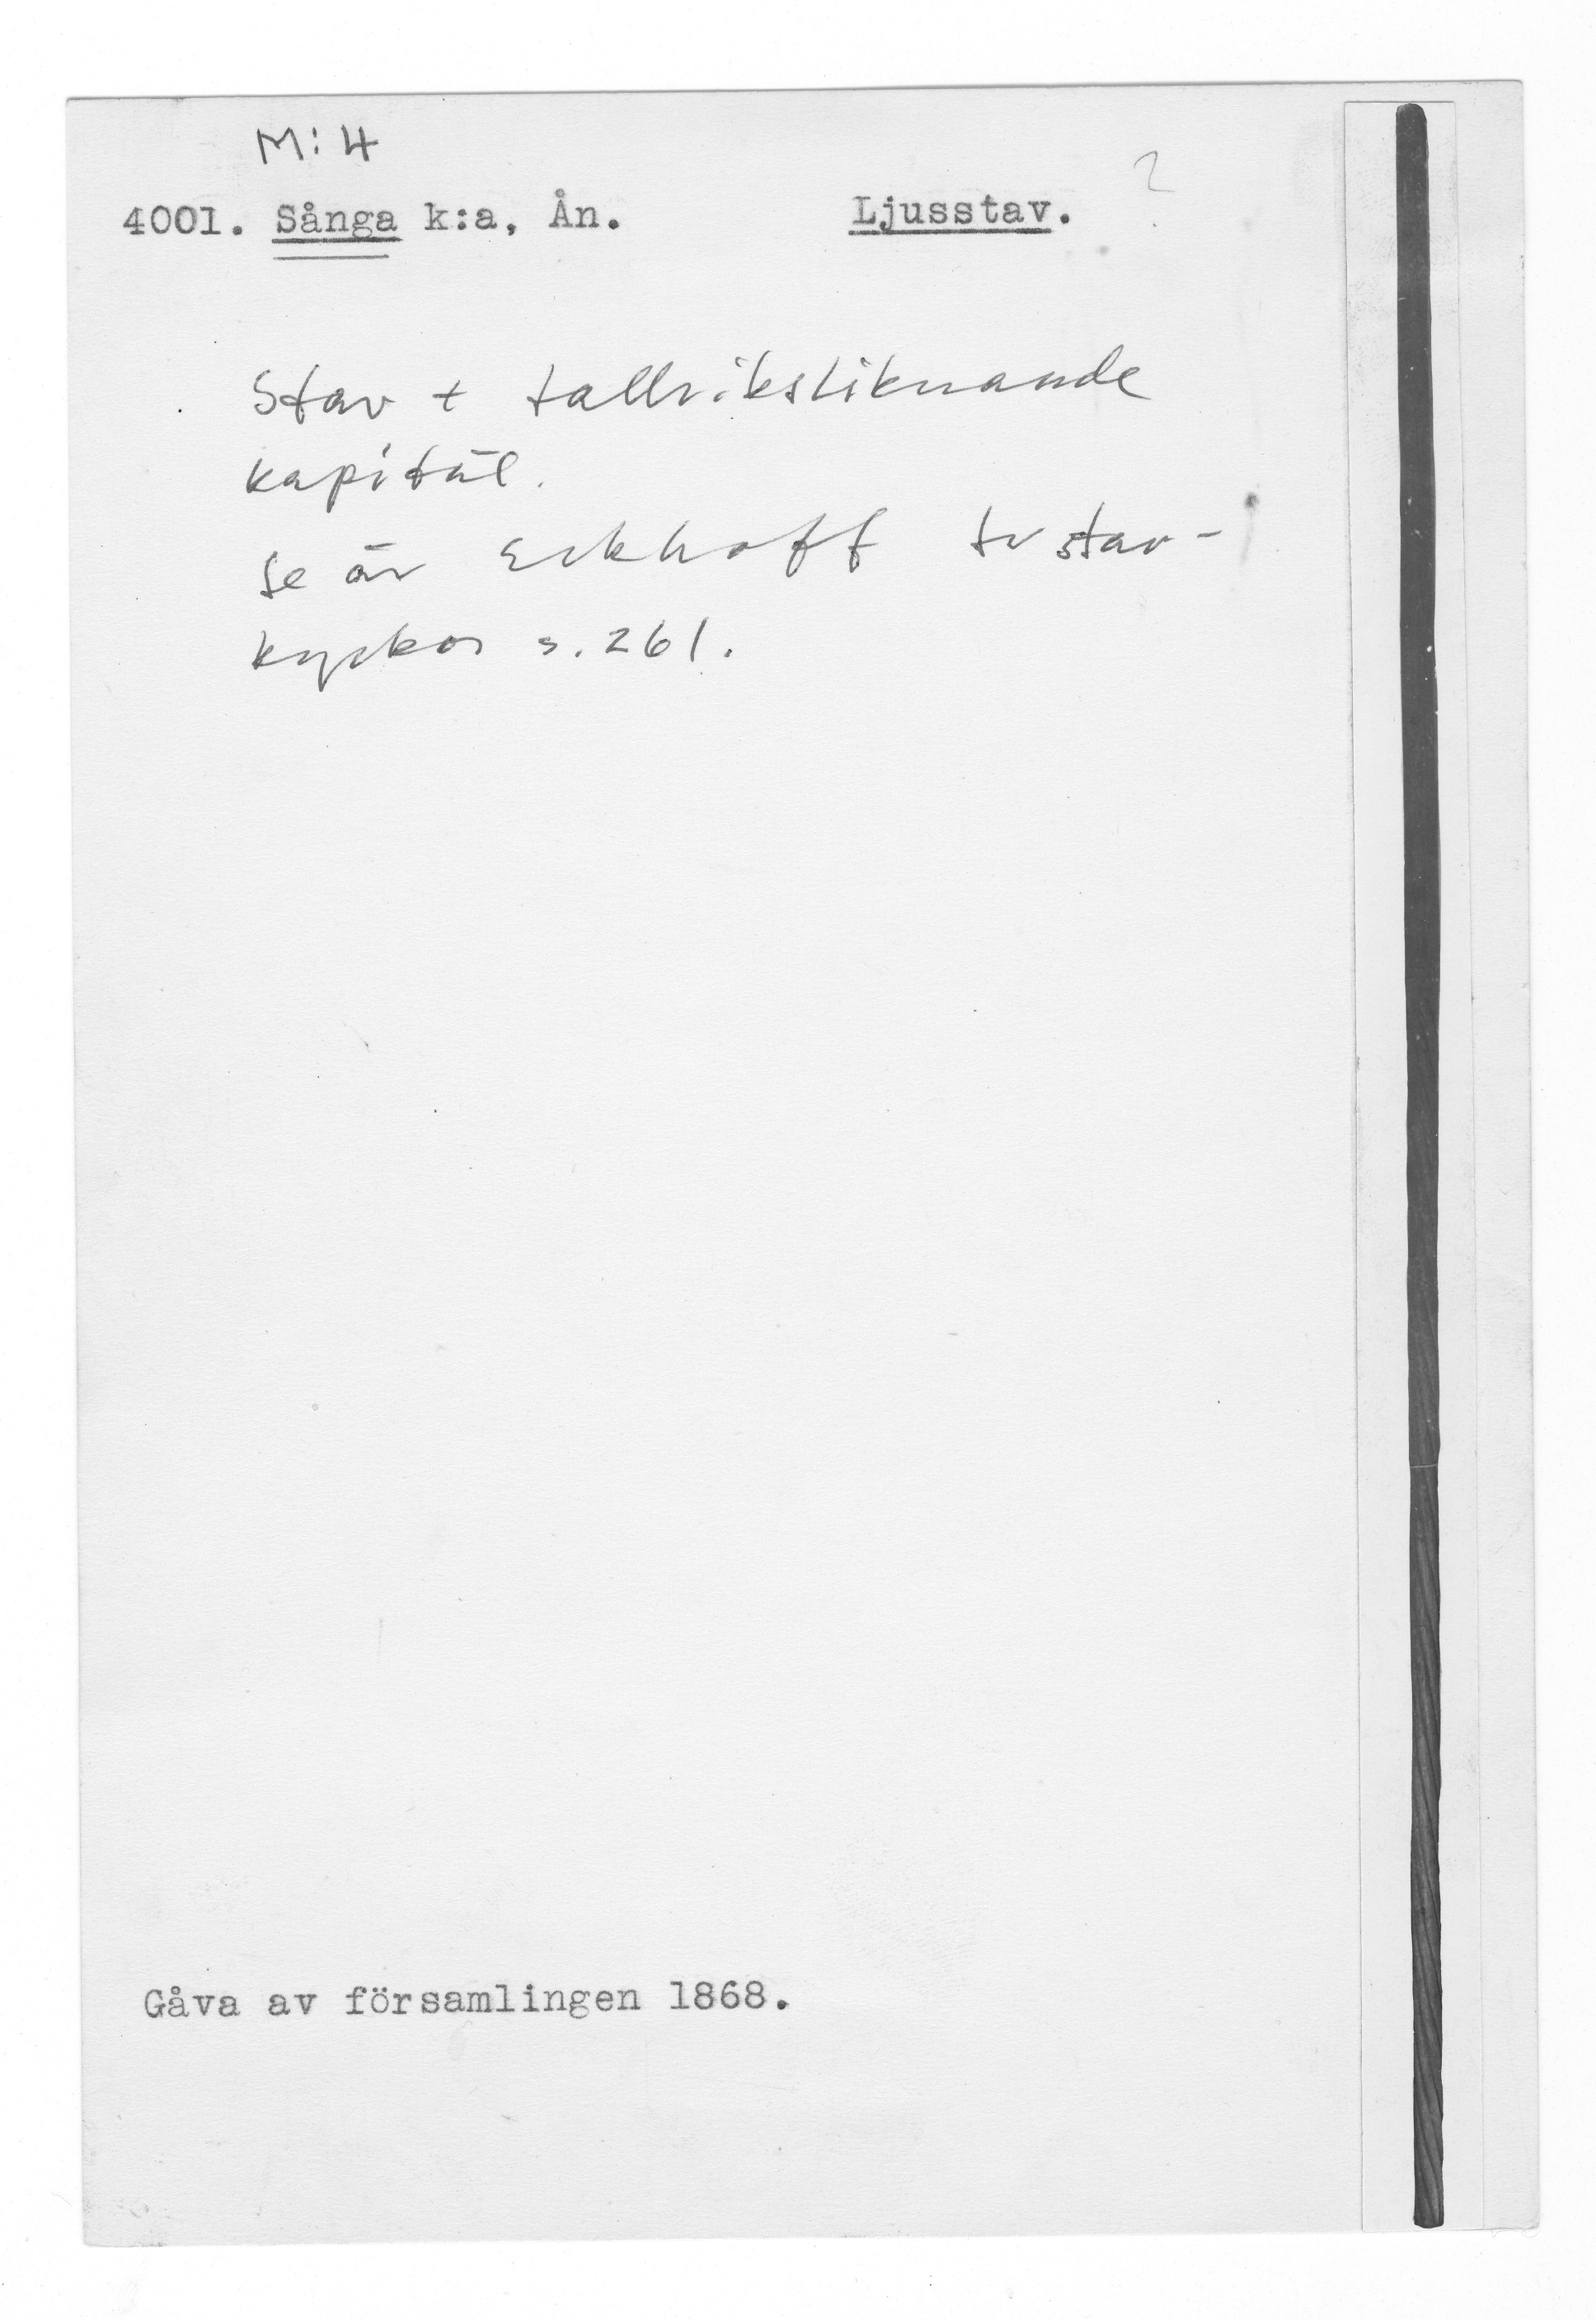 M:4
4001. Sånga k:a, Ån. Ljusstav. ?
Stav + tallriksliknande
kapitäl.
se är Eckhoff sv stav-
kyrkor s. 261.
Gåva av församlingen 1868.